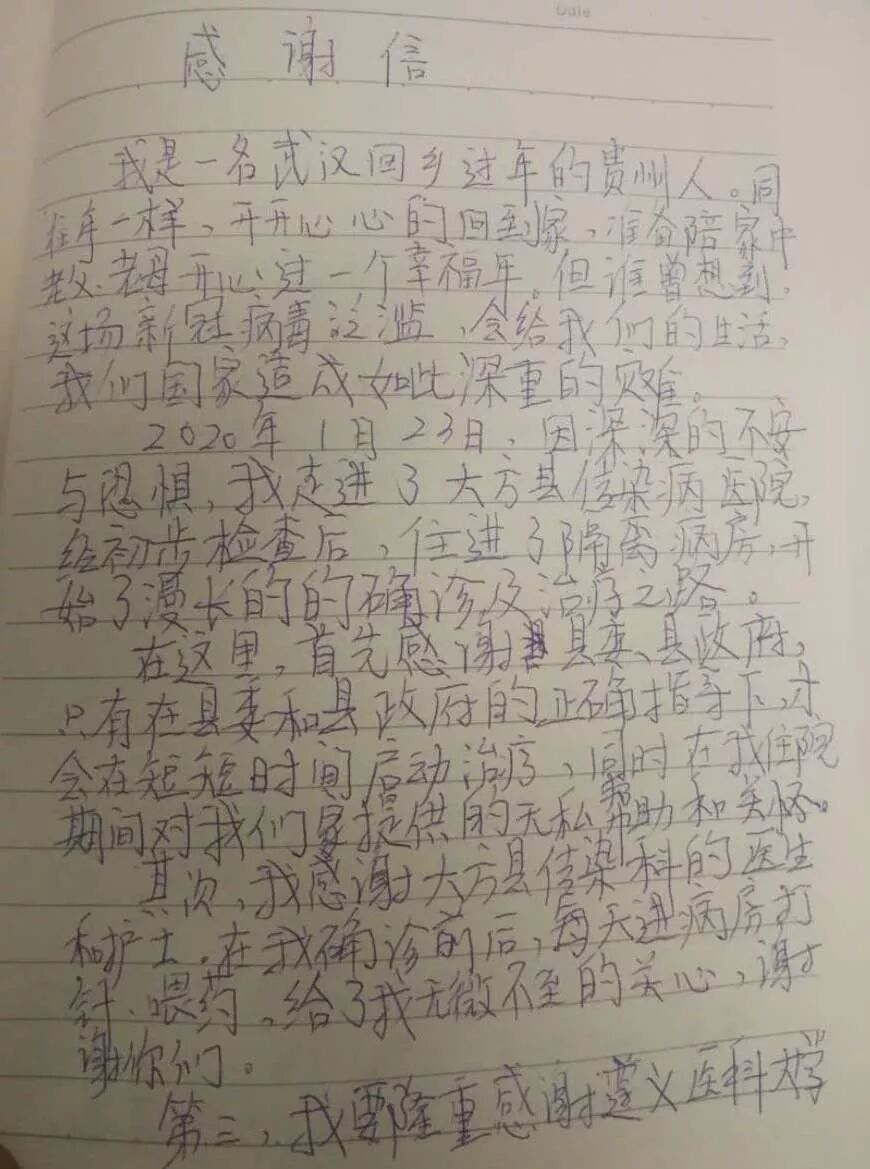 Date
感谢信
我是一名武汉回乡过年的贵州人。同
往年一样，开开心心的回到家，准备陪家中
老父、老母开心过一个幸福年。但谁曾想到，
这场新冠病毒泛滥，会给我们的生活，
我们国家造成如此深重的灾难。
2020年1月23日，因深深的不安
与恐惧，我走进了大方县传染病医院，
经初步检查后，住进了隔离病房，开
始了漫长的的确诊及治疗之路。
在这里，首先感谢县委、县政府，
只有在县委和县政府的正确指导下，才
会在短短时间启动治疗，同时在我住院
期间对我们家提供的无私帮助和关怀。
其次，我感谢大方县传染科的医生
和护士，在我确诊前后，每天进病房打
针、喂药，给了我无微不至的关心，谢
谢你们。
第三，我要隆重感谢遵义医科大学